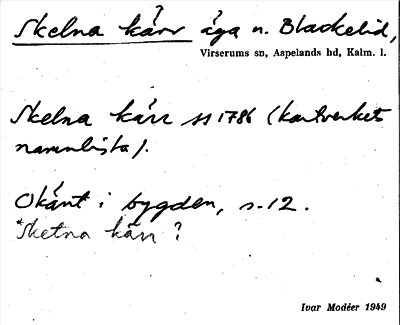 Skelna kärr äga n. Blackelid,
Virserums sn, Aspelands hd, Kalm. l.
Skelna kärr ss 1786 (kartverkets
namnlista).
Okänt i bygden, s. 12.
*Sketna kärr?
Ivar Modéer 1949